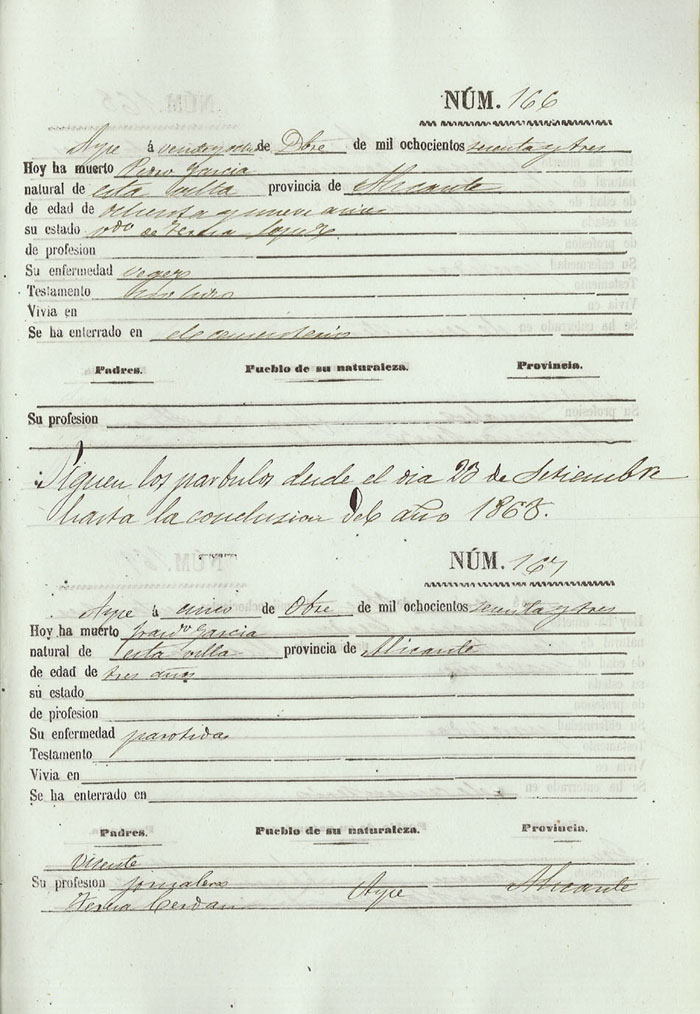 NÚM. 166
Aspe á veinte y ocho de Dbre de mil ochocientos sesenta y tres
Hoy ha muerto Pedro Garcia
natural de esta villa provincia de Alicante
de edad de ochenta y nueve años
su estado vdo de Teresa Lopez
de profesion
Su enfermedad vegez
Testamento
Vivia en
Se ha enterrado en el cementerio
Padres. Pueblo de su naturaleza. Provincia.
Su profesion
Siguen los parbulos desde el dia 23 de Setiembre
hasta la conclusion del año 1863.
NÚM. 167
Aspe á cinco de Obre de mil ochocientos sesenta y tres
Hoy ha muerto Garcia
natural de esta villa provincia de Alicante
de edad de tres años
su estado
de profesion
Su enfermedad parotidas
Testamento
Vivia en
Se ha enterrado en
Padres. Pueblo de su naturaleza. Provincia.
Vicente
Su profesion jornalero Aspe Alicante
Teresa Cerdan